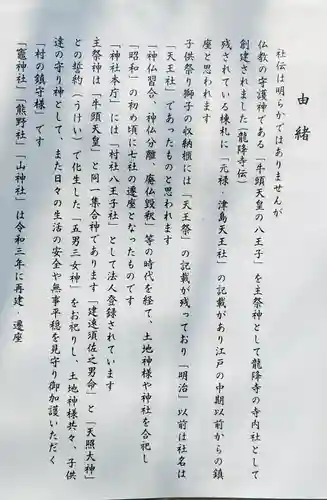 由緒
社伝は明らかではありませんが
仏教の守護神である「牛頭天皇の八王子」を主祭神として龍降寺の寺内社として
創建されました(龍降寺伝)
残されている棟札に「元禄・津島天王社」の記載があり江戸の中期以前からの鎮
座と思われます
子供祭り獅子の収納櫃には「天王祭」の記載が残っており「明治」以前は社名は
「天王社」であったものと思われます
「神仏習合、神仏分離、廃仏毀釈」等の時代を経て、土地神様や神社を合祀し
「昭和」の初め頃に七社の遷座となったものです
「神社本庁」には「村社八王子社」として法人登録されています
主祭神は「牛頭天皇」と同一集合神であります「建速須佐之男命」と「天照大神」
との誓約(うけい)で化生した「五男三女神」をお祀りし、土地神様共々、子供
達の守り神として、また日々の生活の安全や無事平穏を見守り御加護いただく
「村の鎮守様」です
「竈神社」「熊野社」「山神社」は令和三年に再建・遷座